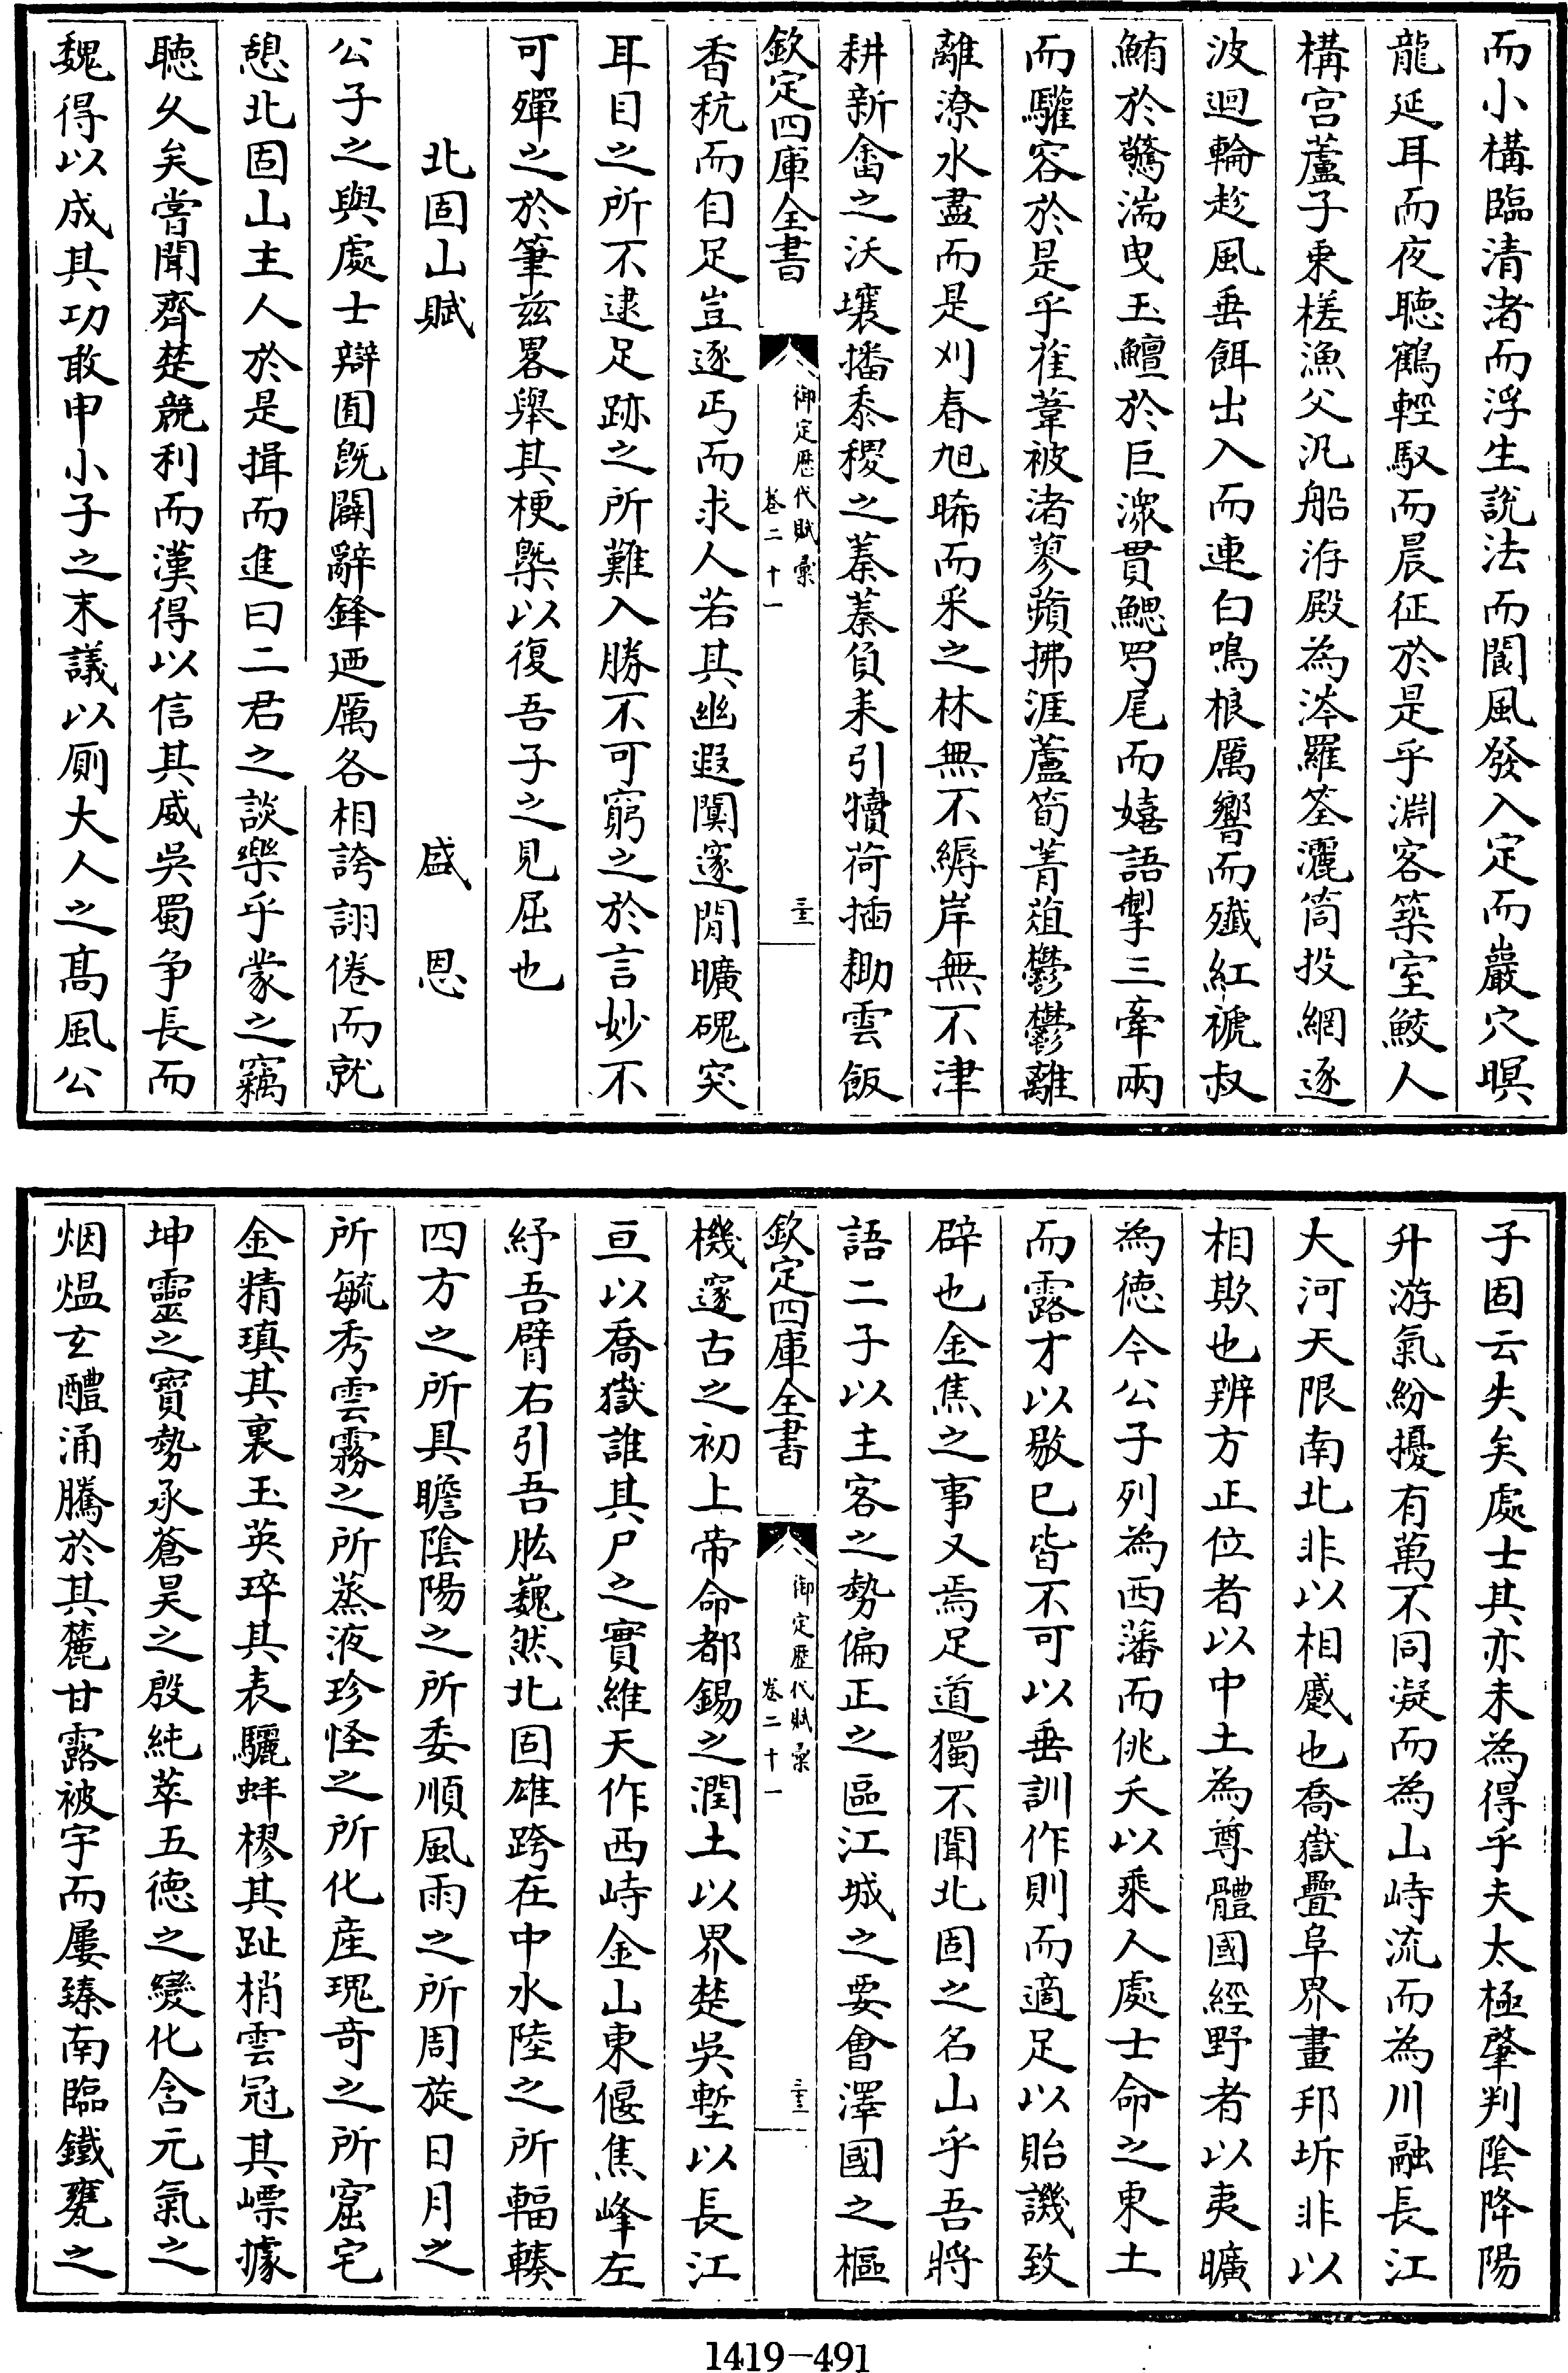 而小構臨清渚而浮生說法而閬風發入定而巖穴暝
龍延耳而夜聽鶴輕馭而晨征於是乎淵客築室鮫人
構宫蘆子東槎漁父汎船洊殿為涔羅筌灑筒投網逐
波迴輪趁風垂餌出入而連白鳴桹厲響而殲紅褫叔
鮪於驚湍曳玉鱣於巨潀貫鰓芎尾而嬉語掣三牽兩
而驩容於是乎萑葦被渚蓼蘋拂涯蘆筍菁葅鬱鬱離
離潦水盡而是刈春旭晞而釆之林無不縟岸無不津
耕新畬之沃壤播黍稷之蓁蓁負耒引犢荷插耡雲飯
欽定四庫全書
御定歷代賦彙
卷二十一
三十三
香秔而自足豈逐丐而求人若其幽遐闃邃閒曠磈突
耳目之所不逮足跡之所難入勝不可窮之於言妙不
可殫之於筆兹畧舉其梗槩以復吾子之見屈也
北固山賦 盛恩
公子之與處士辯囿旣闢辭鋒廼厲各相誇詡倦而就
憩北固山主人於是揖而進曰二君之談樂乎蒙之竊
聽久矣嘗聞齊楚競利而漢得以信其威吳蜀争長而
魏得以成其功敢申小子之末議以廁大人之髙風公
子固云失矣處士其亦未為得乎夫太極肇判陰降陽
升游氣紛擾有萬不同凝而為山峙流而為川融長江
大河天限南北非以相慼也喬嶽疊阜界畫邦坼非以
相欺也辨方正位者以中土為尊體國經野者以夷曠
為德今公子列為西藩而佻夭以乘人處士命之東土
而露才以敭已皆不可以垂訓作則而適足以貽譏致
辟也金焦之事又焉足道獨不聞北固之名山乎吾將
語二子以主客之勢偏正之區江城之要會澤國之樞
欽定四庫全書
御定歷代賦彙
卷二十一
三十三
機邃古之初上帝命都錫之潤土以界楚吳塹以長江
亘以喬嶽誰其尸之實維天作西峙金山東偃焦峰左
紓吾臂右引吾肱巍然北固雄跨在中水陸之所輻輳
四方之所具瞻陰陽之所委順風雨之所周旋日月之
所毓秀雲霧之所蒸液珍怪之所化産瑰奇之所窟宅
金精瑱其裏玉英琗其表驪蚌樛其趾梢雲冠其嶫據
坤靈之寳勢承蒼昊之殷純萃五德之變化含元氣之
烟熅玄醴涌騰於其麓甘露被宇而屢臻南臨鐵甕之
1419-491